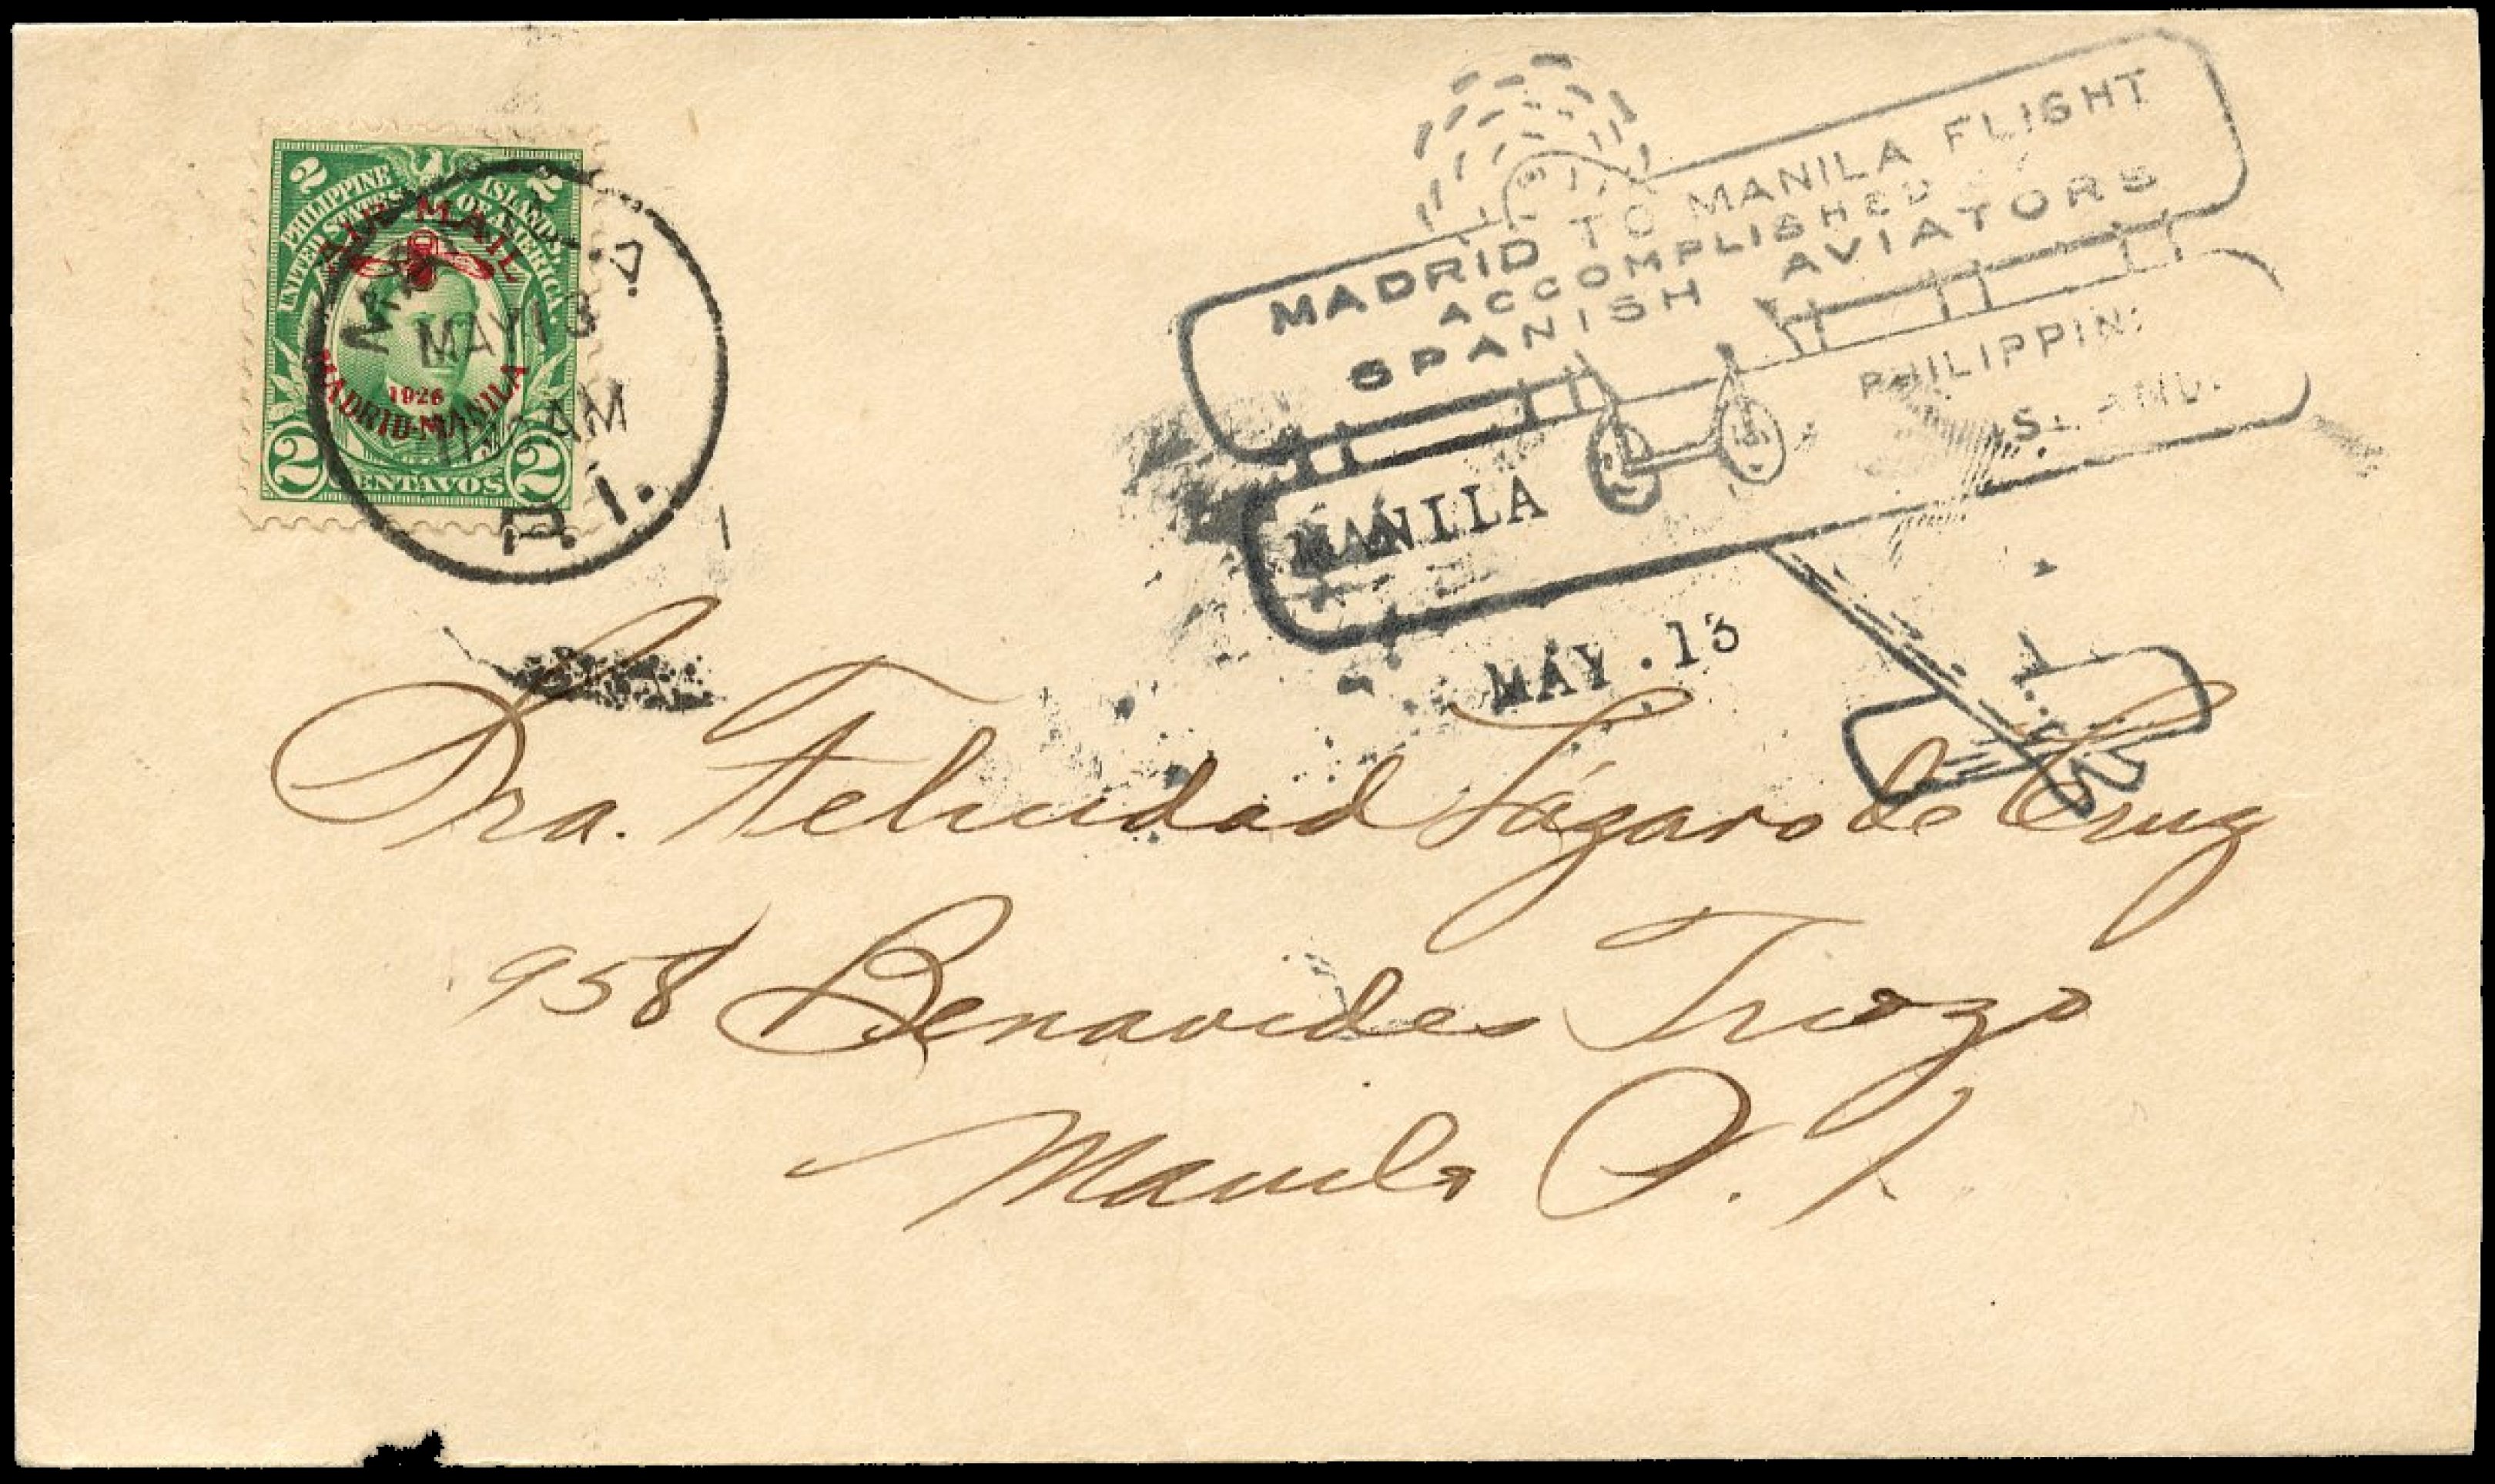 2 2
PHILIPPINE ISLANDS,
UNITED STATES OF AMERICA.
AIR MAIL
1926
MADRID-MANILA
2 CENTAVOS 2
MAY 13
AM
P. I.
MADRID TO MANILA FLIGHT
ACCOMPLISHED
SPANISH AVIATORS
PHILIPPIN
MANILA
MAY.13
Sra. Felicidad Lázaro de Cruz
958 Benavides Trozo
Manila P. I.